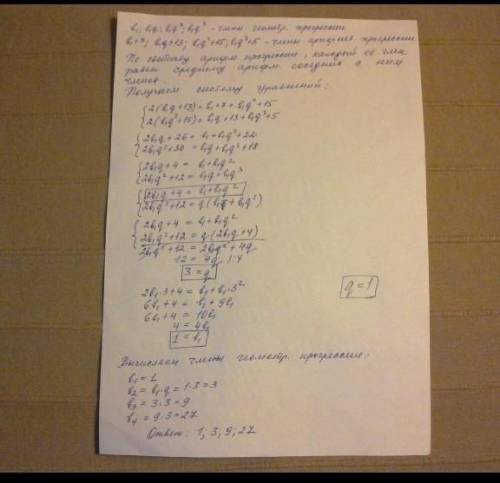 b₁; b₁q; b₁q²; b₁q³ - члены геометр. прогрессии
b₁+7; b₁q+13; b₁q²+15; b₁q³+5 - члены арифмет. прогрессии.
По свойству арифм. прогрессии, каждый её член
равен среднему арифм. соседних с ним
членов.
Получаем систему уравнений:
{2(b₁q+13) = b₁+7+b₁q²+15
{2(b₁q²+15) = b₁q+13+b₁q³+5
{2b₁q+26 = b₁+b₁q²+22
{2b₁q²+30 = b₁q+b₁q³+18
{2b₁q+4 = b₁+b₁q²
{2b₁q²+12 = b₁q+b₁q³
{2b₁q+4 = b₁+b₁q²
{2b₁q²+12 = q·(b₁+b₁q²)
{2b₁q+4 = b₁+b₁q²
{2b₁q²+12 = q·(2b₁q+4)
2b₁q²+12 = 2b₁q²+4q
12 = 4q |:4
3 = q
q=1
2b₁·3+4 = b₁+b₁·3²
6b₁+4 = b₁+9b₁
6b₁+4 = 10b₁
4 = 4b₁
1 = b₁
Вычисляем члены геометр. прогрессии:
b₁ = 1
b₂ = b₁·q = 1·3 = 3
b₃ = 3·3 = 9
b₄ = 9·3 = 27
Ответ: 1, 3, 9, 27